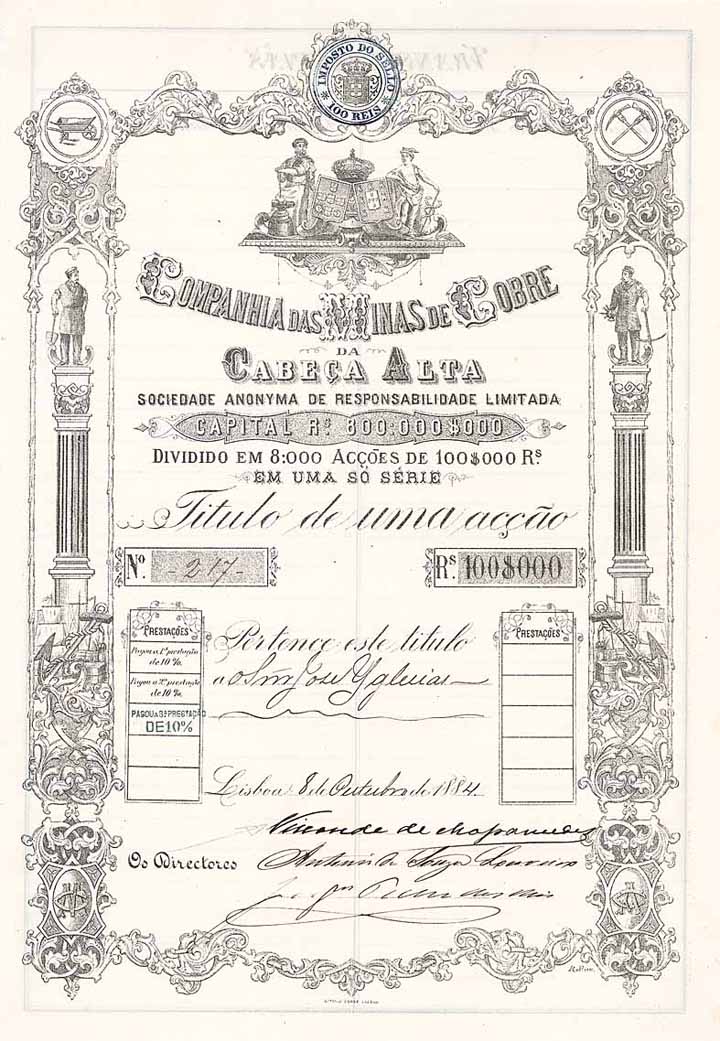 IMPOSTO DO SELLO
100 REIS
COMPANHIA DAS MINAS DE COBRE
DA
CABEÇA ALTA
SOCIEDADE ANONYMA DE RESPONSABILIDADE LIMITADA
CAPITAL Rs. 800:000$000
DIVIDIDO EM 8:000 ACÇÕES DE 100$000 Rs.
EM UMA SÓ SÉRIE
Titulo de uma acção
No. -217-
Rs. 100$000
PRESTAÇÕES
Pagou a 1a prestação
de 10%.
Pagou a 2a prestação
de 10%.
PAGOU A 3a PRESTAÇÃO
DE 10%
Pertence este titulo
a o Snr José Yglesias
PRESTAÇÕES
Lisboa 8 de Outubro de 1884
Visconde de
Os Directores
Antonio de Souza